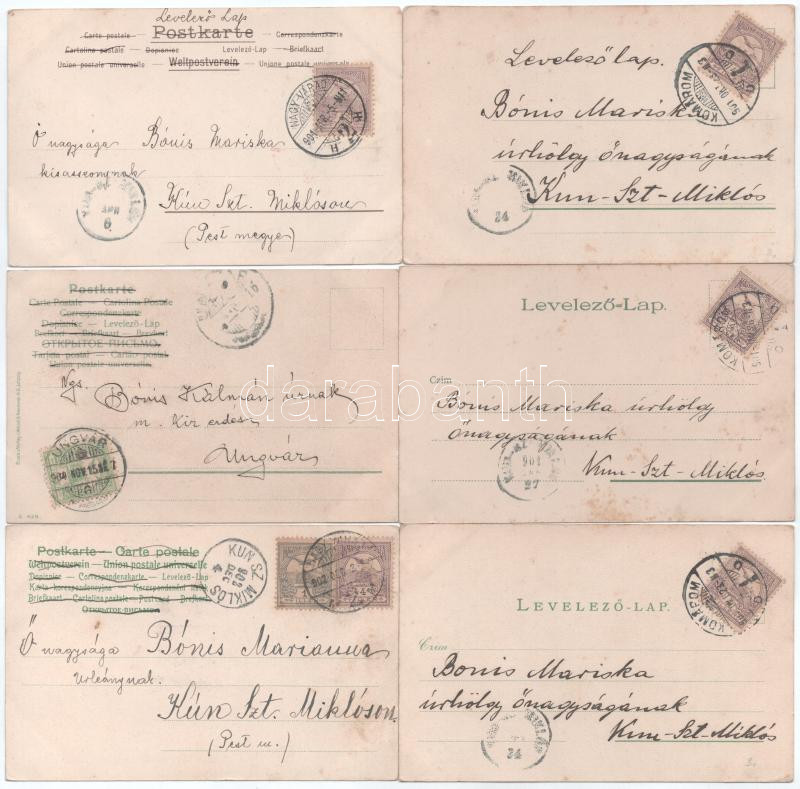 Levelező Lap
Carte postale — Postkarte — Correspondenzkarte
Cartolina postale — Dopisnec — Levelező-Lap — Briefkaart
Union postale universelle — Weltpostverein — Unione postale universale
NAGY-VÁRAD
Ő nagysága Bónis Mariska
kisasszonynak
APR
6
Kún Szt. Miklóson
(Pest megye)
Levelező lap.
KOMÁROM
Bónis Mariska
úrhölgy őnagyságának
Kun-Szt-Miklós
24
Postkarte
Carte Postale — Cartolina Postale
Correspondenzkarte
Dopisnec — Levelező-Lap
Brefkort — Briefkaart — Brevkort
ОТКРЫТОЕ ПИСЬМО.
Tarjeta postal — Cartão postal
Union postale universelle.
Ngs. Bónis Kálmán úrnak
m. kir erdész
Ungvár
UNGVÁR
Levelező-Lap.
KOMÁROM
Czím
Bónis Mariska úrhölgy
őnagyságának
Kun-Szt-Miklós.
901
27
Postkarte — Carte postale
Weltpostverein — Union postale universelle
Dopisnec — Correspondenzkarte — Levelező-Lap
Karta korrespondencyjna — Korespondenční lístek
Briefkaart — Cartolina postale — Postcard — Brefkort
ОТКРЫТОЕ ПИСЬМО
KUN SZ. MIKLÓS
902
DEC
4
Ő nagysága Bónis Marianna
Urleánynak.
Kún Szt. Miklóson.
(Pest m.)
LEVELEZŐ-LAP.
KOMÁROM
Czím
Bonis Mariska
úrhölgy őnagyságának
Kun-Szt-Miklós
24
darabanth